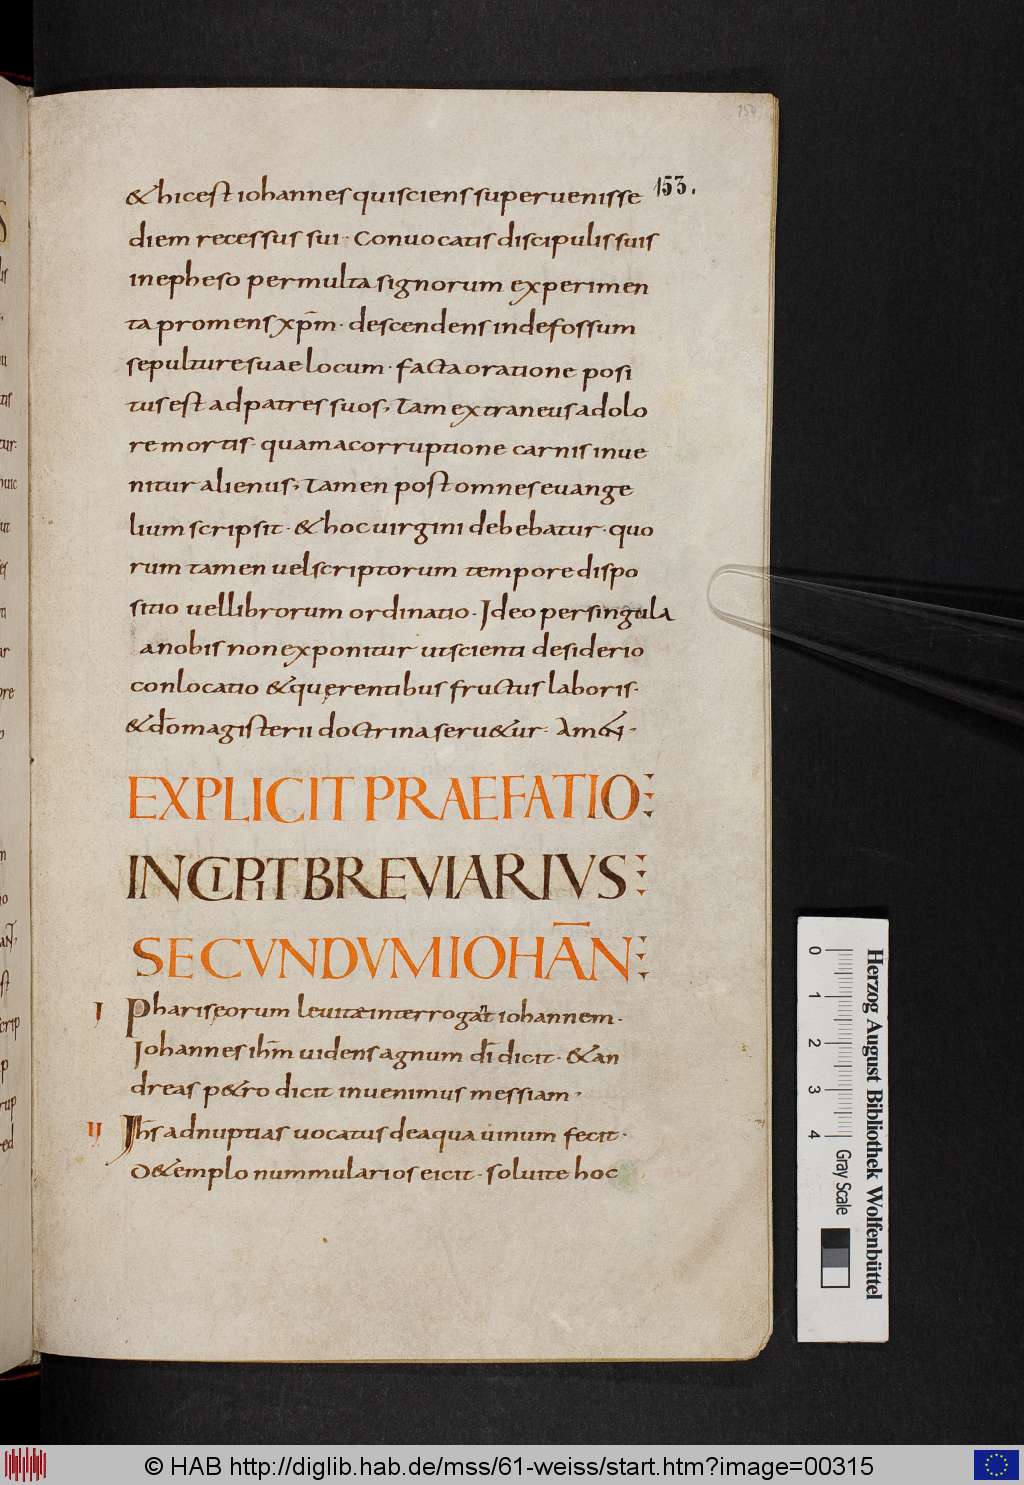 154
153.
& hic est iohannes qui sciens superuenisse
diem recessus sui · Conuocatis discipulis suis
in epheso per multa signorum experimen
ta promens xp̄m · descendens in defossum
sepulture suae locum · facta oratione posi
tus est ad patres suos, Tam extraneus a dolo
re mortis · quam a corruptione carnis inue
nitur alienus, Tamen post omnes euange
lium scripsit · & hoc uirgini debebatur · quo
rum tamen uel scriptorum tempore dispo
sitio uel librorum ordinatio · Ideo per singula
a nobis non exponitur ut scienti desiderio
conlocatio & quęrentibus fructus laboris ·
& dō magisterii doctrina seru&ur · Am&N ·
EXPLICIT PRAEFATIO
INCIPIT BREVIARIVS
SECVNDVM IOHAN̄
I Phariseorum leuitae interrogat iohannem ·
Johannes ih̄m uidens agnum dī dicit · & an
dreas p&ro dicit inuenimus messiam ·
II Jh̄s ad nuptias uocatus de aqua uinum fecit ·
De& emplo nummularios eicit · soluite hoc
0
1
2
3
4
Gray Scale
Herzog August Bibliothek Wolfenbüttel
© HAB http://diglib.hab.de/mss/61-weiss/start.htm?image=00315